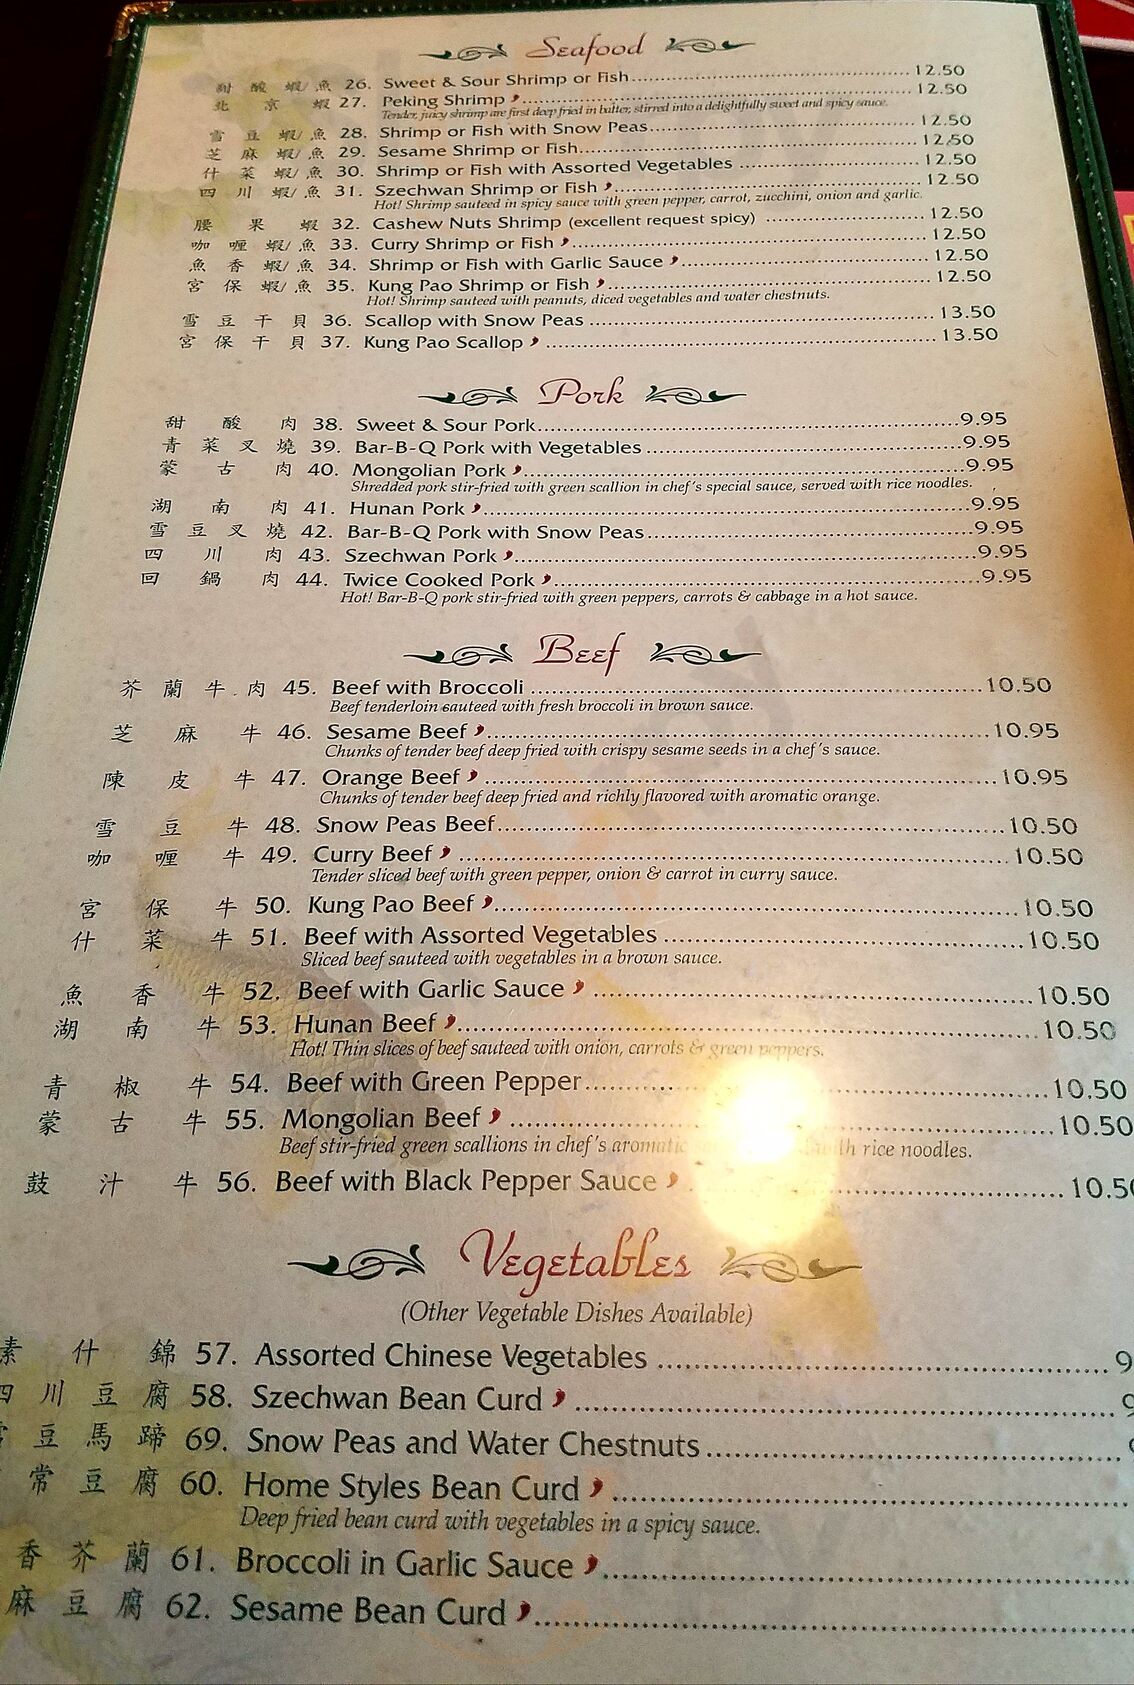 Seafood
甜 酸 蝦/魚 26. Sweet & Sour Shrimp or Fish 12.50
北 京 蝦 27. Peking Shrimp 12.50
Tender, juicy shrimp are first deep fried in batter, stirred into a delightfully sweet and spicy sauce.
雪 豆 蝦/魚 28. Shrimp or Fish with Snow Peas 12.50
芝 麻 蝦/魚 29. Sesame Shrimp or Fish 12.50
什 菜 蝦/魚 30. Shrimp or Fish with Assorted Vegetables 12.50
四 川 蝦/魚 31. Szechwan Shrimp or Fish 12.50
Hot! Shrimp sauteed in spicy sauce with green pepper, carrot, zucchini, onion and garlic.
腰 果 蝦 32. Cashew Nuts Shrimp (excellent request spicy) 12.50
咖 喱 蝦/魚 33. Curry Shrimp or Fish 12.50
魚 香 蝦/魚 34. Shrimp or Fish with Garlic Sauce 12.50
宮 保 蝦/魚 35. Kung Pao Shrimp or Fish 12.50
Hot! Shrimp sauteed with peanuts, diced vegetables and water chestnuts.
雪 豆 干 貝 36. Scallop with Snow Peas 13.50
宮 保 干 貝 37. Kung Pao Scallop 13.50
Pork
甜 酸 肉 38. Sweet & Sour Pork 9.95
青 菜 叉 燒 39. Bar-B-Q Pork with Vegetables 9.95
蒙 古 肉 40. Mongolian Pork 9.95
Shredded pork stir-fried with green scallion in chef's special sauce, served with rice noodles.
湖 南 肉 41. Hunan Pork 9.95
雪 豆 叉 燒 42. Bar-B-Q Pork with Snow Peas 9.95
四 川 肉 43. Szechwan Pork 9.95
回 鍋 肉 44. Twice Cooked Pork 9.95
Hot! Bar-B-Q pork stir-fried with green peppers, carrots & cabbage in a hot sauce.
Beef
芥 蘭 牛 肉 45. Beef with Broccoli 10.50
Beef tenderloin sauteed with fresh broccoli in brown sauce.
芝 麻 牛 46. Sesame Beef 10.95
Chunks of tender beef deep fried with crispy sesame seeds in a chef's sauce.
陳 皮 牛 47. Orange Beef 10.95
Chunks of tender beef deep fried and richly flavored with aromatic orange.
雪 豆 牛 48. Snow Peas Beef 10.50
咖 喱 牛 49. Curry Beef 10.50
Tender sliced beef with green pepper, onion & carrot in curry sauce.
宮 保 牛 50. Kung Pao Beef 10.50
什 菜 牛 51. Beef with Assorted Vegetables 10.50
Sliced beef sauteed with vegetables in a brown sauce.
魚 香 牛 52. Beef with Garlic Sauce 10.50
湖 南 牛 53. Hunan Beef 10.50
Hot! Thin slices of beef sauteed with onion, carrots & green peppers.
青 椒 牛 54. Beef with Green Pepper 10.50
蒙 古 牛 55. Mongolian Beef 10.50
Beef stir-fried green scallions in chef's aromatic with rice noodles.
鼓 汁 牛 56. Beef with Black Pepper Sauce 10.50
Vegetables
(Other Vegetable Dishes Available)
素 什 錦 57. Assorted Chinese Vegetables 9
四 川 豆 腐 58. Szechwan Bean Curd
豆 馬 蹄 69. Snow Peas and Water Chestnuts
常 豆 腐 60. Home Styles Bean Curd
Deep fried bean curd with vegetables in a spicy sauce.
香 芥 蘭 61. Broccoli in Garlic Sauce
麻 豆 腐 62. Sesame Bean Curd